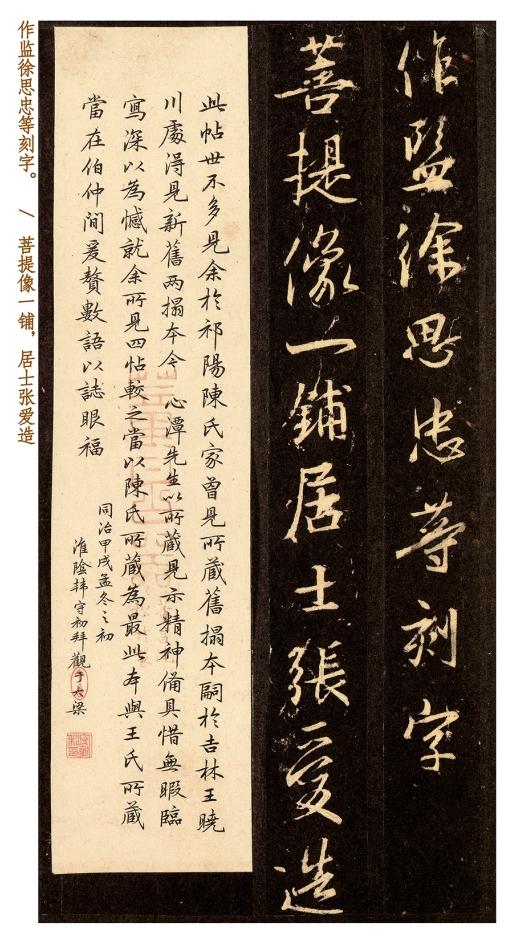 作監徐思忠等刻字
菩提像一鋪居士張愛造
此帖世不多見余於祁陽陳氏家曾見所藏舊搨本嗣於吉林王曉
川處淂見新舊两搨本今心潭先生以所藏見示精神俻具惜無暇臨
寫深以為憾就余所見四帖較之當以陳氏所藏為最此本與王氏所藏
當在伯仲间爰贅數語以誌眼福
同治甲戌孟冬之初
淮陰韩守初拜觀于大梁
作监徐思忠等刻字。 / 菩提像一铺，居士张爱造